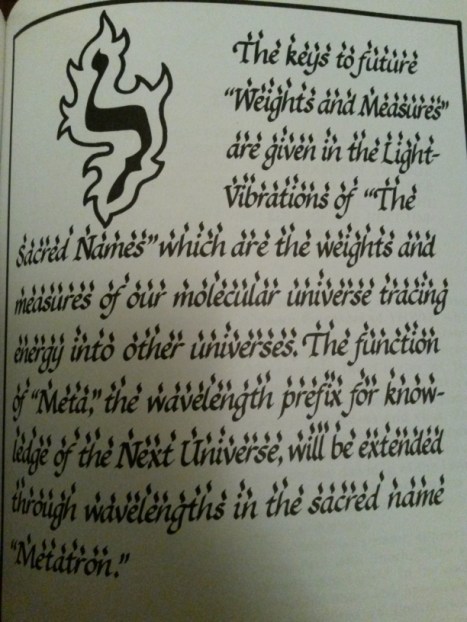 ל
The keys to future
“Weights and Measures”
are given in the Light-
Vibrations of “The
Sacred Names” which are the weights and
measures of our molecular universe tracing
energy into other universes. The function
of “Meta,” the wavelength prefix for know-
ledge of the Next Universe, will be extended
through wavelengths in the sacred name
“Metatron.”